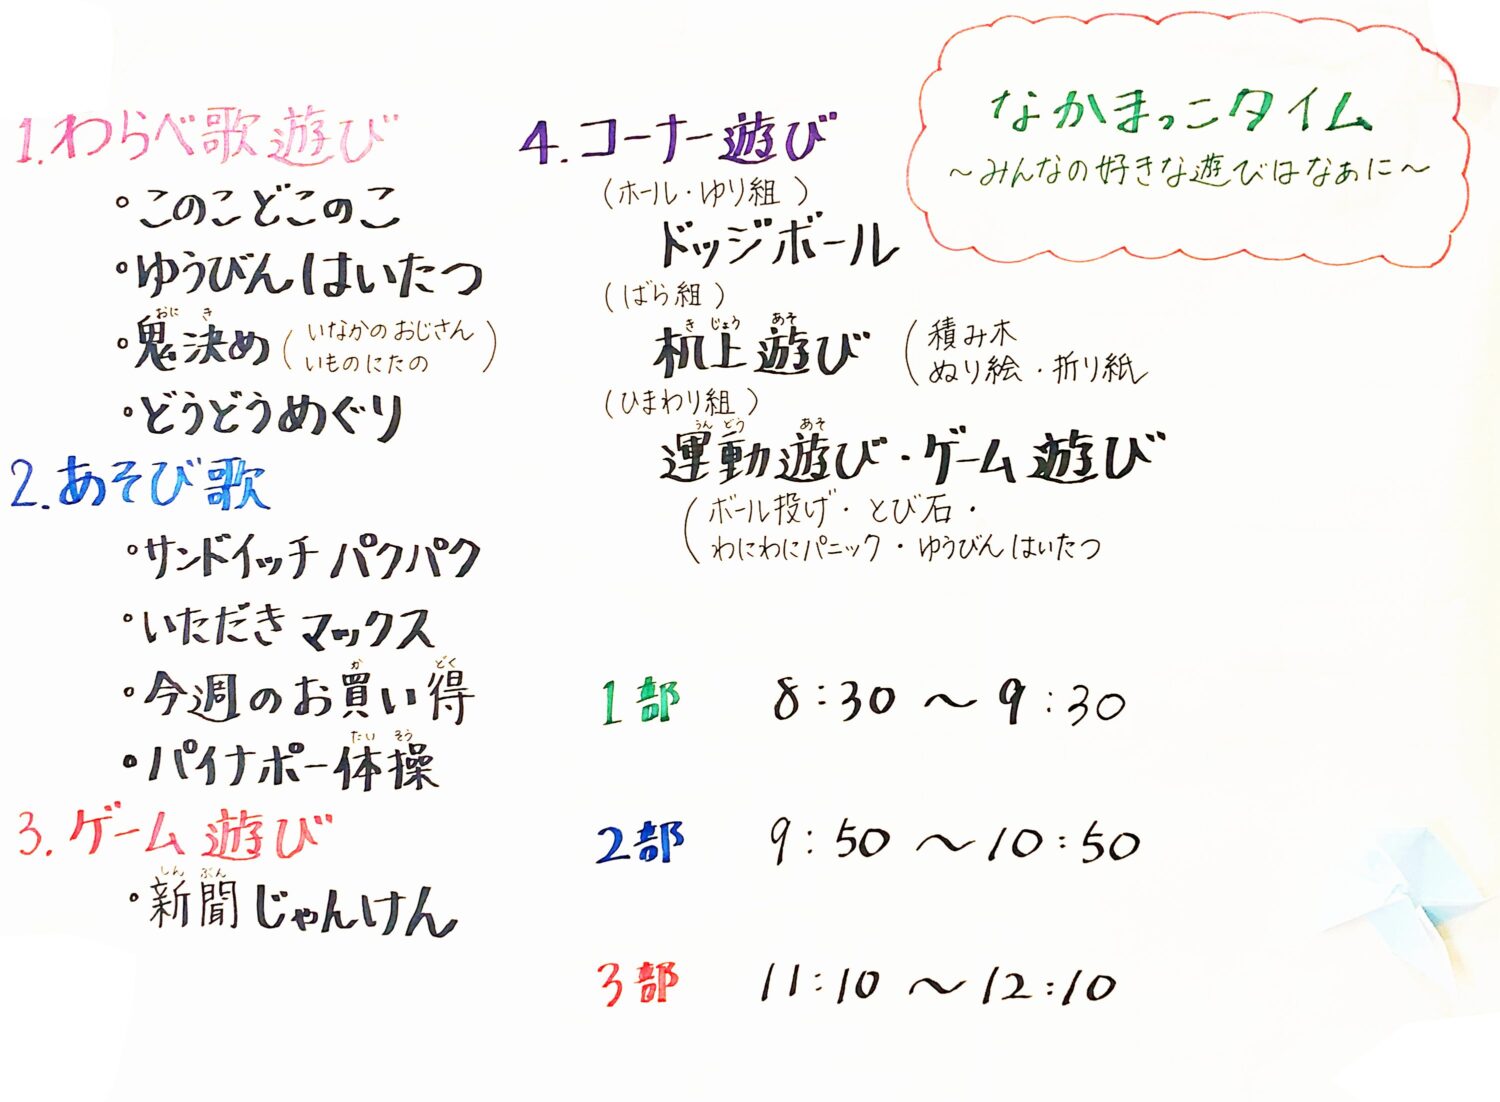 なかまっこタイム
～みんなの好きな遊びはなぁに～
1.わらべ歌遊び
・このこどこのこ
・ゆうびんはいたつ
おに き
・鬼決め（いなかのおじさん
いものにたの）
・どうどうめぐり
2.あそび歌
・サンドイッチパクパク
・いただきマックス
か どく
・今週のお買い得
たい そう
・パイナポー体操
3.ゲーム遊び
しん ぶん
・新聞じゃんけん
4.コーナー遊び
（ホール・ゆり組）
ドッジボール
（ばら組）
き じょう あそ
机上遊び（積み木
ぬり絵・折り紙
（ひまわり組）
うん どう あそ
運動遊び・ゲーム遊び
（ボール投げ・とび石・
わにわにパニック・ゆうびんはいたつ
1部 8:30～9:30
2部 9:50～10:50
3部 11:10～12:10